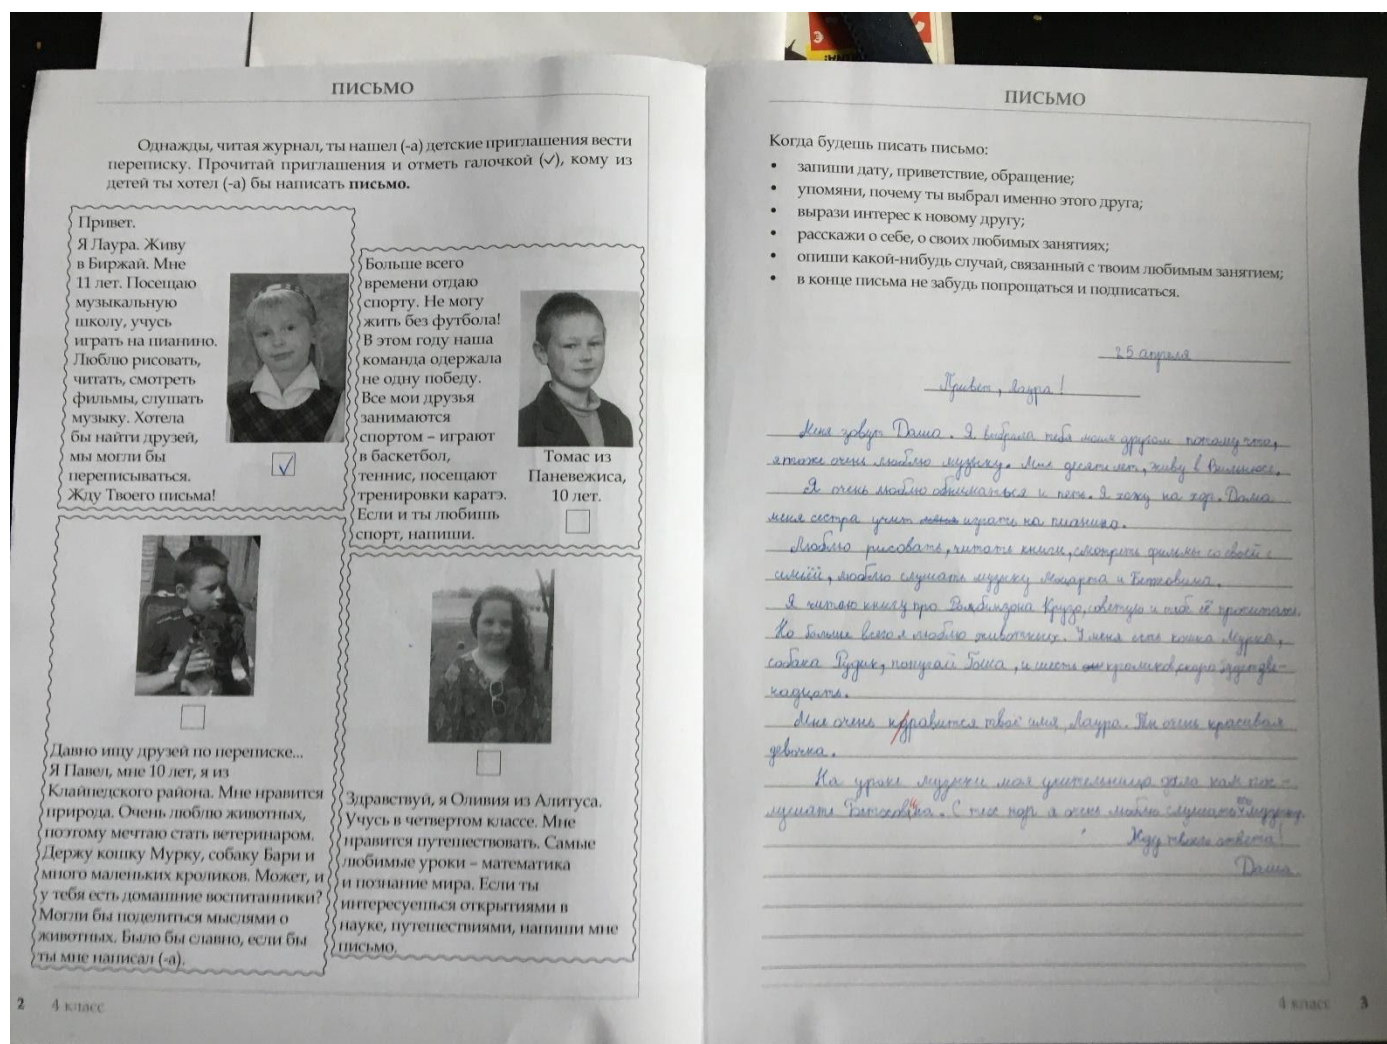 ПИСЬМО
Однажды, читая журнал, ты нашел (-а) детские приглашения вести
переписку. Прочитай приглашения и отметь галочкой (✓), кому из
детей ты хотел (-а) бы написать письмо.
Привет.
Я Лаура. Живу
в Биржай. Мне
11 лет. Посещаю
музыкальную
школу, учусь
играть на пианино.
Люблю рисовать,
читать, смотреть
фильмы, слушать
музыку. Хотела
бы найти друзей,
мы могли бы
переписываться.
Жду Твоего письма!
Больше всего
времени отдаю
спорту. Не могу
жить без футбола!
В этом году наша
команда одержала
не одну победу.
Все мои друзья
занимаются
спортом – играют
в баскетбол,
теннис, посещают
тренировки каратэ.
Если и ты любишь
спорт, напиши.
Томас из
Паневежиса,
10 лет.
Давно ищу друзей по переписке...
Я Павел, мне 10 лет, я из
Клайпедского района. Мне нравится
природа. Очень люблю животных,
поэтому мечтаю стать ветеринаром.
Держу кошку Мурку, собаку Бари и
много маленьких кроликов. Может, и
у тебя есть домашние воспитанники?
Могли бы поделиться мыслями о
животных. Было бы славно, если бы
ты мне написал (-а).
Здравствуй, я Оливия из Алитуса.
Учусь в четвертом классе. Мне
нравится путешествовать. Самые
любимые уроки – математика
и познание мира. Если ты
интересуешься открытиями в
науке, путешествиями, напиши мне
письмо.
2 4 класс
ПИСЬМО
Когда будешь писать письмо:
• запиши дату, приветствие, обращение;
• упомяни, почему ты выбрал именно этого друга;
• вырази интерес к новому другу;
• расскажи о себе, о своих любимых занятиях;
• опиши какой-нибудь случай, связанный с твоим любимым занятием;
• в конце письма не забудь попрощаться и подписаться.
25 апреля
Привет, Лаура!
Меня зовут Даша. Я выбрала тебя моим другом потому что,
я тоже очень люблю музыку. Мне десять лет, живу в Вильнюсе.
Я очень люблю обниматься и петь. Я хожу на хор. Дома
меня сестра учит играть на пианино.
Люблю рисовать, читать книги, смотреть фильмы со своей с
семьёй, люблю слушать музыку Моцарта и Бетховина.
Я читаю книгу про Крузо, советую и тебе её прочитать.
Но больше всего я люблю животных. У меня есть кошка Мурка,
собака Рудик, попугай Гоша, и шесть кроликов, скоро будет две-
надцать.
Мне очень нравится твоё имя, Лаура. Ты очень красивая
девочка.
На уроке музыки моя учительница дала нам пос-
лушать Бетховина. С тех пор я очень люблю слушать музыку.
Жду твоего ответа!
Даша
4 класс 3